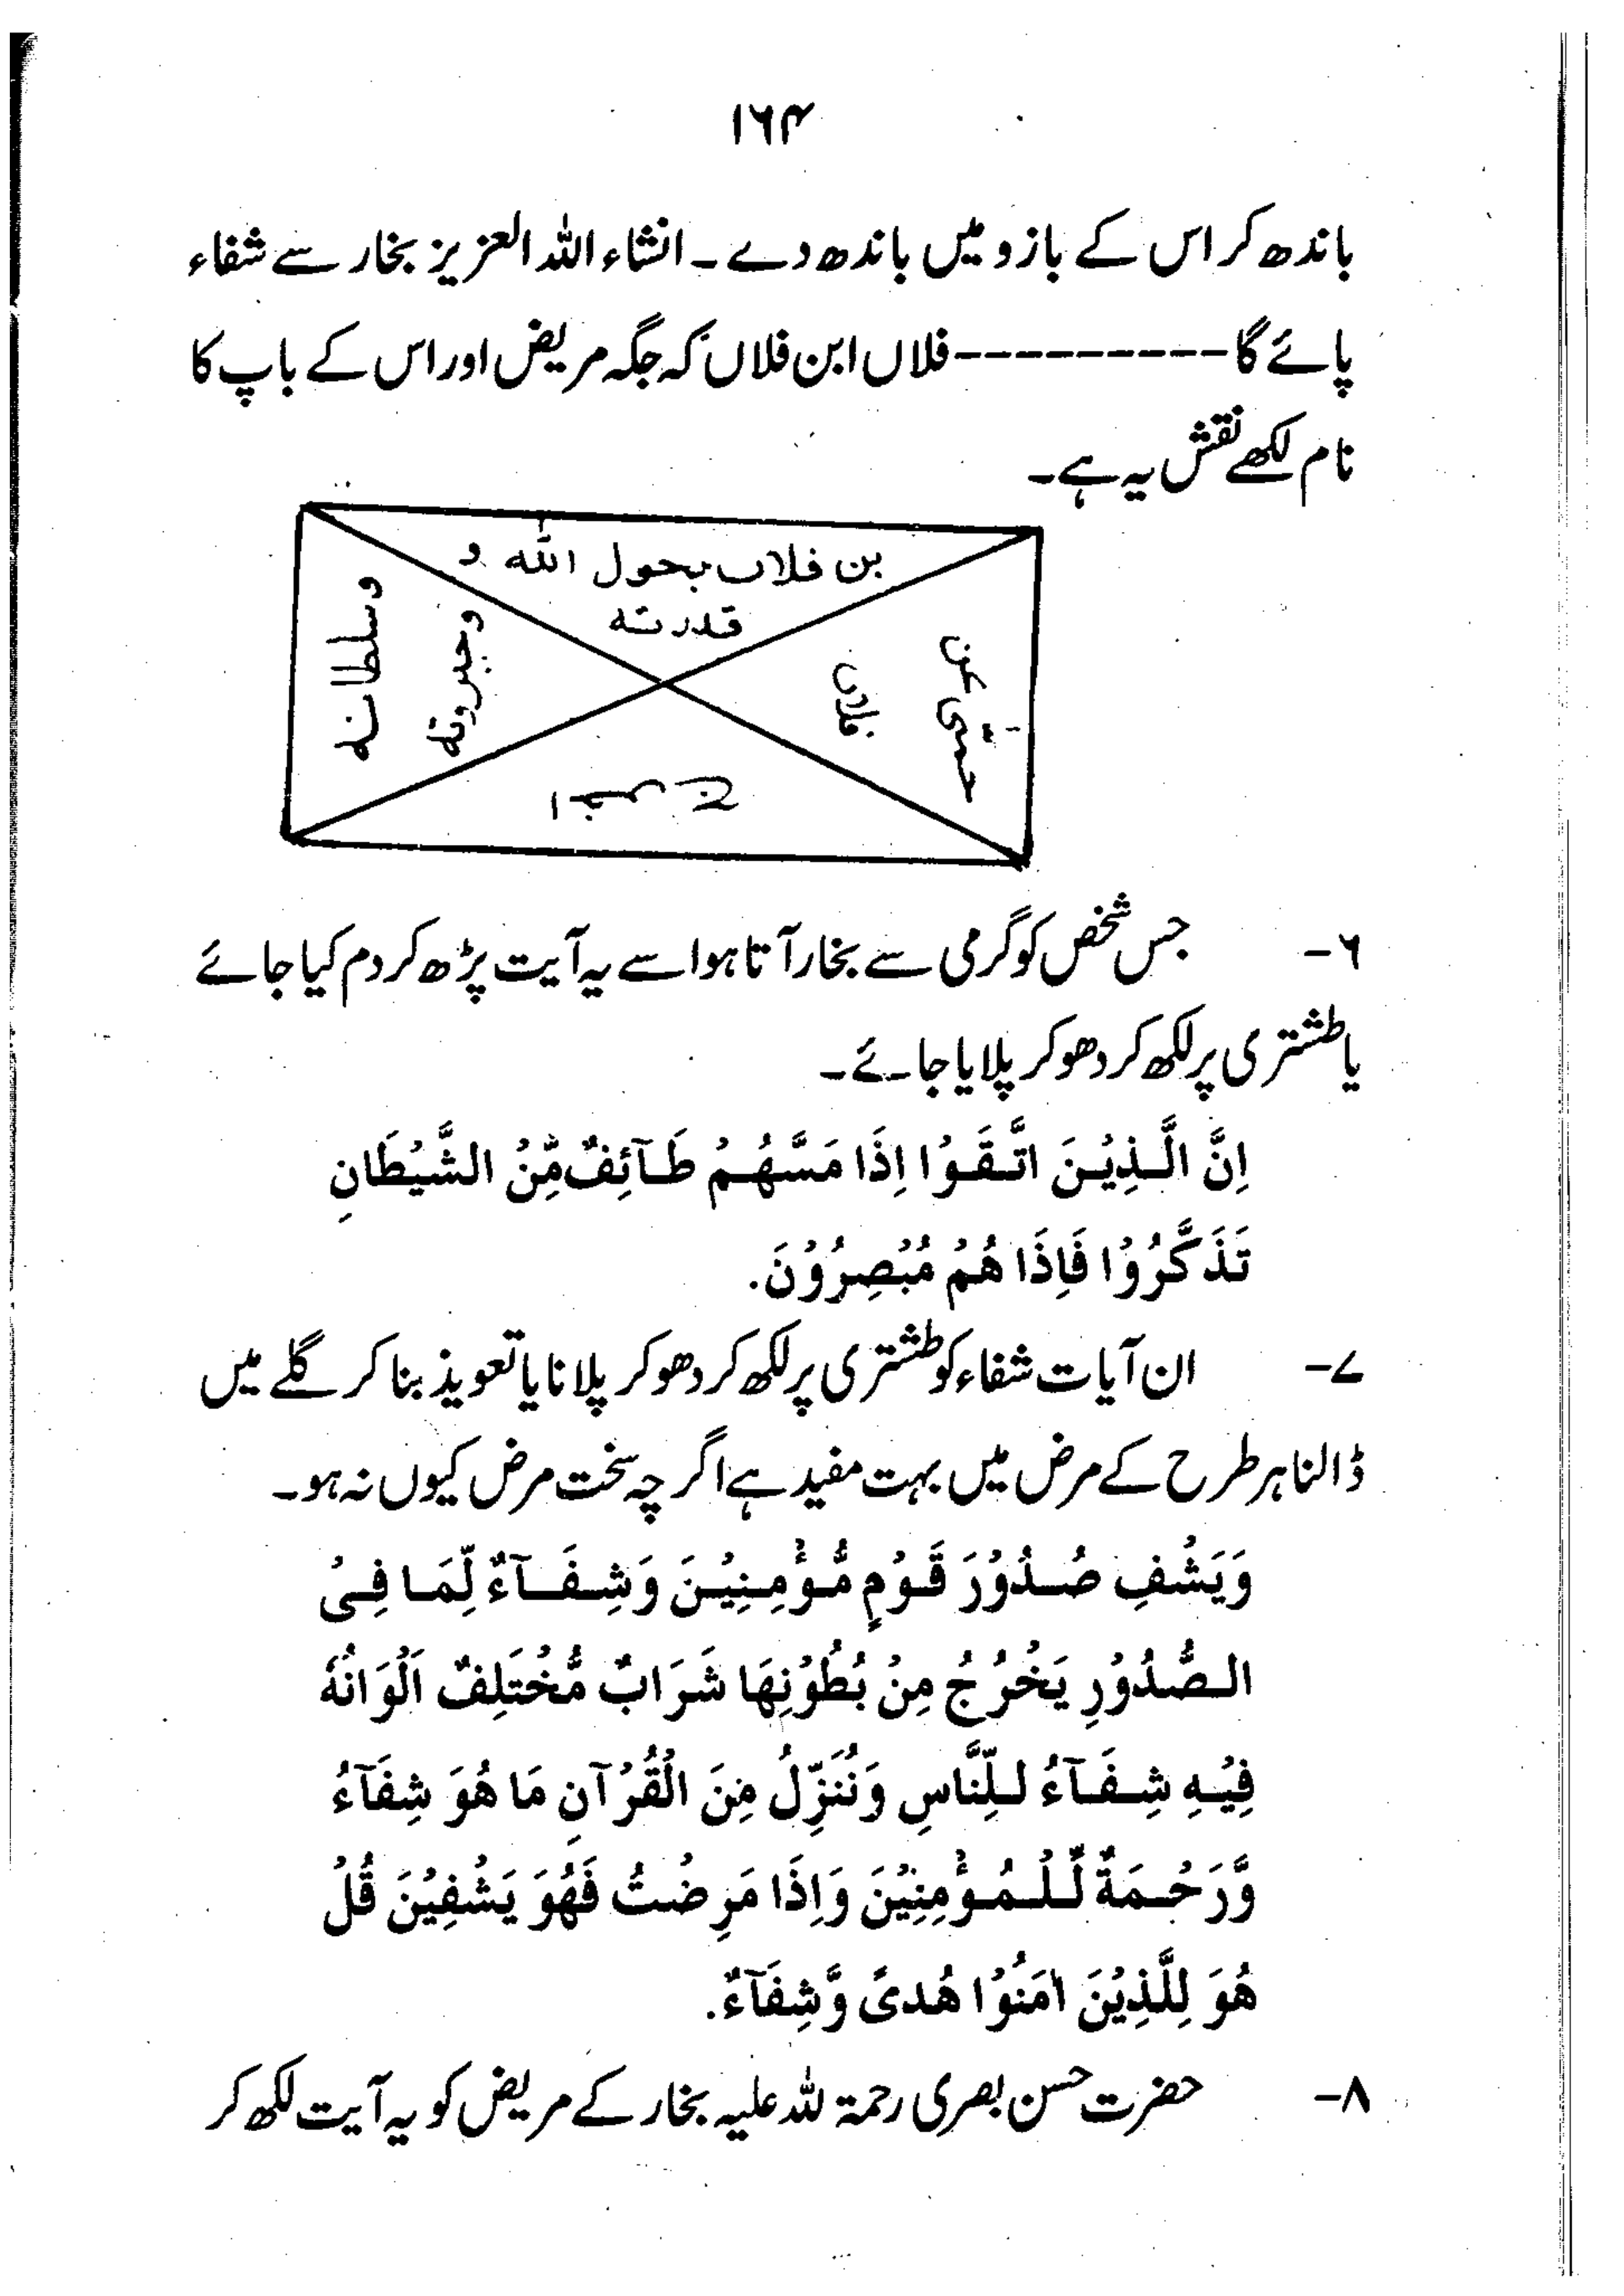 ۱۶۴
باندھ کر اس کے بازو میں باندھ دے ۔ انشاء اللہ العزیز بخار سے شفاء
پائے گا ---------- فلاں ابن فلاں کہ جگہ مریض اور اس کے باپ کا
نام لکھے نقش یہ ہے۔
بن فلاں بحول اللہ و
قدرتہ
وسلطانہ
وجبروتہ
حمتی عن
فلان
اخرج
۶- جس شخص کو گرمی سے بخار آتا ہو اسے یہ آیت پڑھ کر دم کیا جائے
یا طشتری پر لکھ کر دھو کر پلایا جائے۔
اِنَّ الَّذِيْنَ اتَّقَوْا اِذَا مَسَّهُمْ طَآئِفٌ مِّنْ الشَّيْطَانِ
تَذَكَّرُوْا فَاِذَا هُمْ مُبْصِرُوْنَ.
۷- ان آیات شفاء کو طشتری پر لکھ کر دھو کر پلانا یا تعویذ بنا کر گلے میں
ڈالنا ہر طرح کے مرض میں بہت مفید ہے اگر چہ سخت مرض کیوں نہ ہو۔
وَيَشْفِ صُدُوْرَ قَوْمٍ مُّؤْمِنِيْنَ وَشِفَآءٌ لِّمَا فِىْ
الصُّدُوْرِ يَخْرُجُ مِنْ بُطُوْنِهَا شَرَابٌ مُّخْتَلِفٌ اَلْوَانُهُ
فِيْهِ شِفَآءُ لِلنَّاسِ وَنُنَزِّلُ مِنَ الْقُرْآنِ مَا هُوَ شِفَآءُ
وَّرَحْمَةٌ لِّلْمُؤْمِنِيْنَ وَاِذَا مَرِضْتُ فَهُوَ يَشْفِيْنَ قُلْ
هُوَ لِلَّذِيْنَ اٰمَنُوْا هُدىً وَّشِفَآءٌ.
۸- حضرت حسن بصری رحمۃ للہ علیہ بخار کے مریض کو یہ آیت لکھ کر